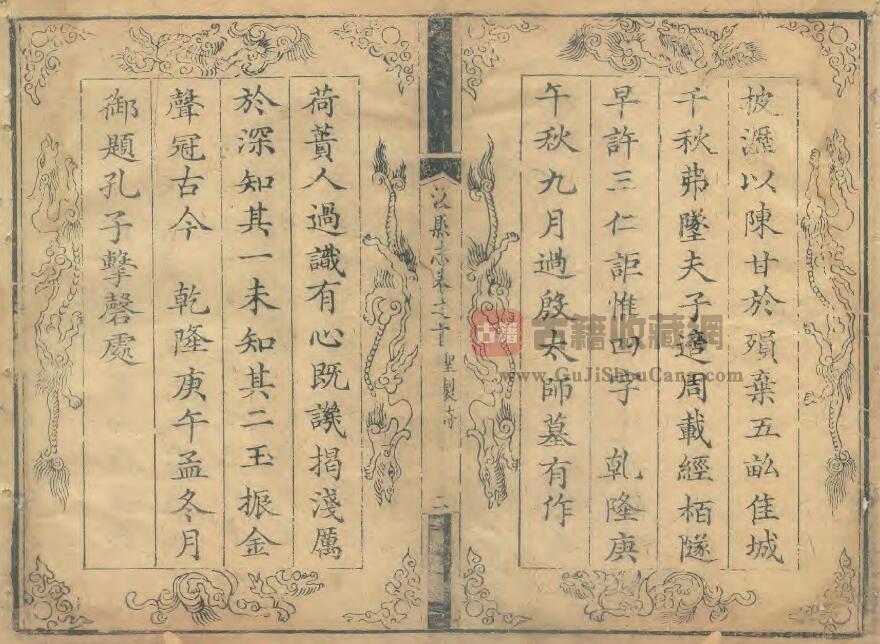 披瀝以陳甘於殞棄五畝佳城
千秋弗墜夫子適周載經栢隧
早許三仁詎惟四字　乾隆庚
午秋九月過殷太師墓有作
汲縣志卷之首　聖製詩　二
荷蕢人過識有心既譏揭淺厲
於深知其一未知其二玉振金
聲冠古今　乾隆庚午孟冬月
御題孔子擊磬處
古籍
古籍收藏網
www.GuJiShouCang.com